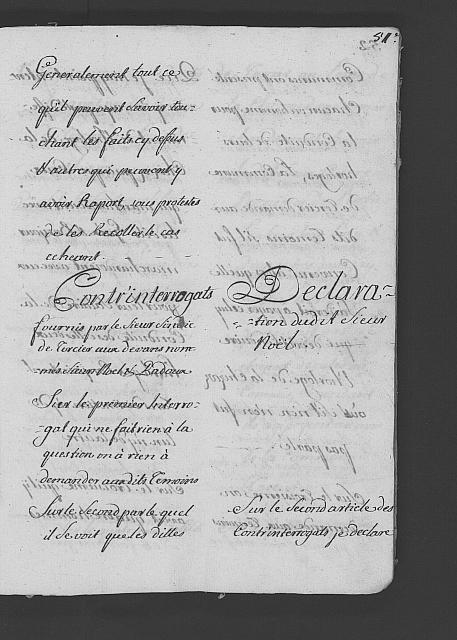 51.
Generalement tout ce
qu'il peuvent Savoir tou-
chant les faits cy dessus
& autres qui peuvent y
avoir Raport, vous protestés
de les Recoller le cas
echeant.
Contr'interrogats
fournis par le Sieur Sindic
de Tercier aux devans nom-
més Sieurs Noel & Badoux
Sur le premier Interro-
gat qui ne fait rien à la
question on à rien à
demander aux dits Temoins
Sur le Second par le quel
il Se voit que les dittes
Declara-
-tion dudit Sieur
Noël
Sur le Second article des
Contrinterrogats je declare